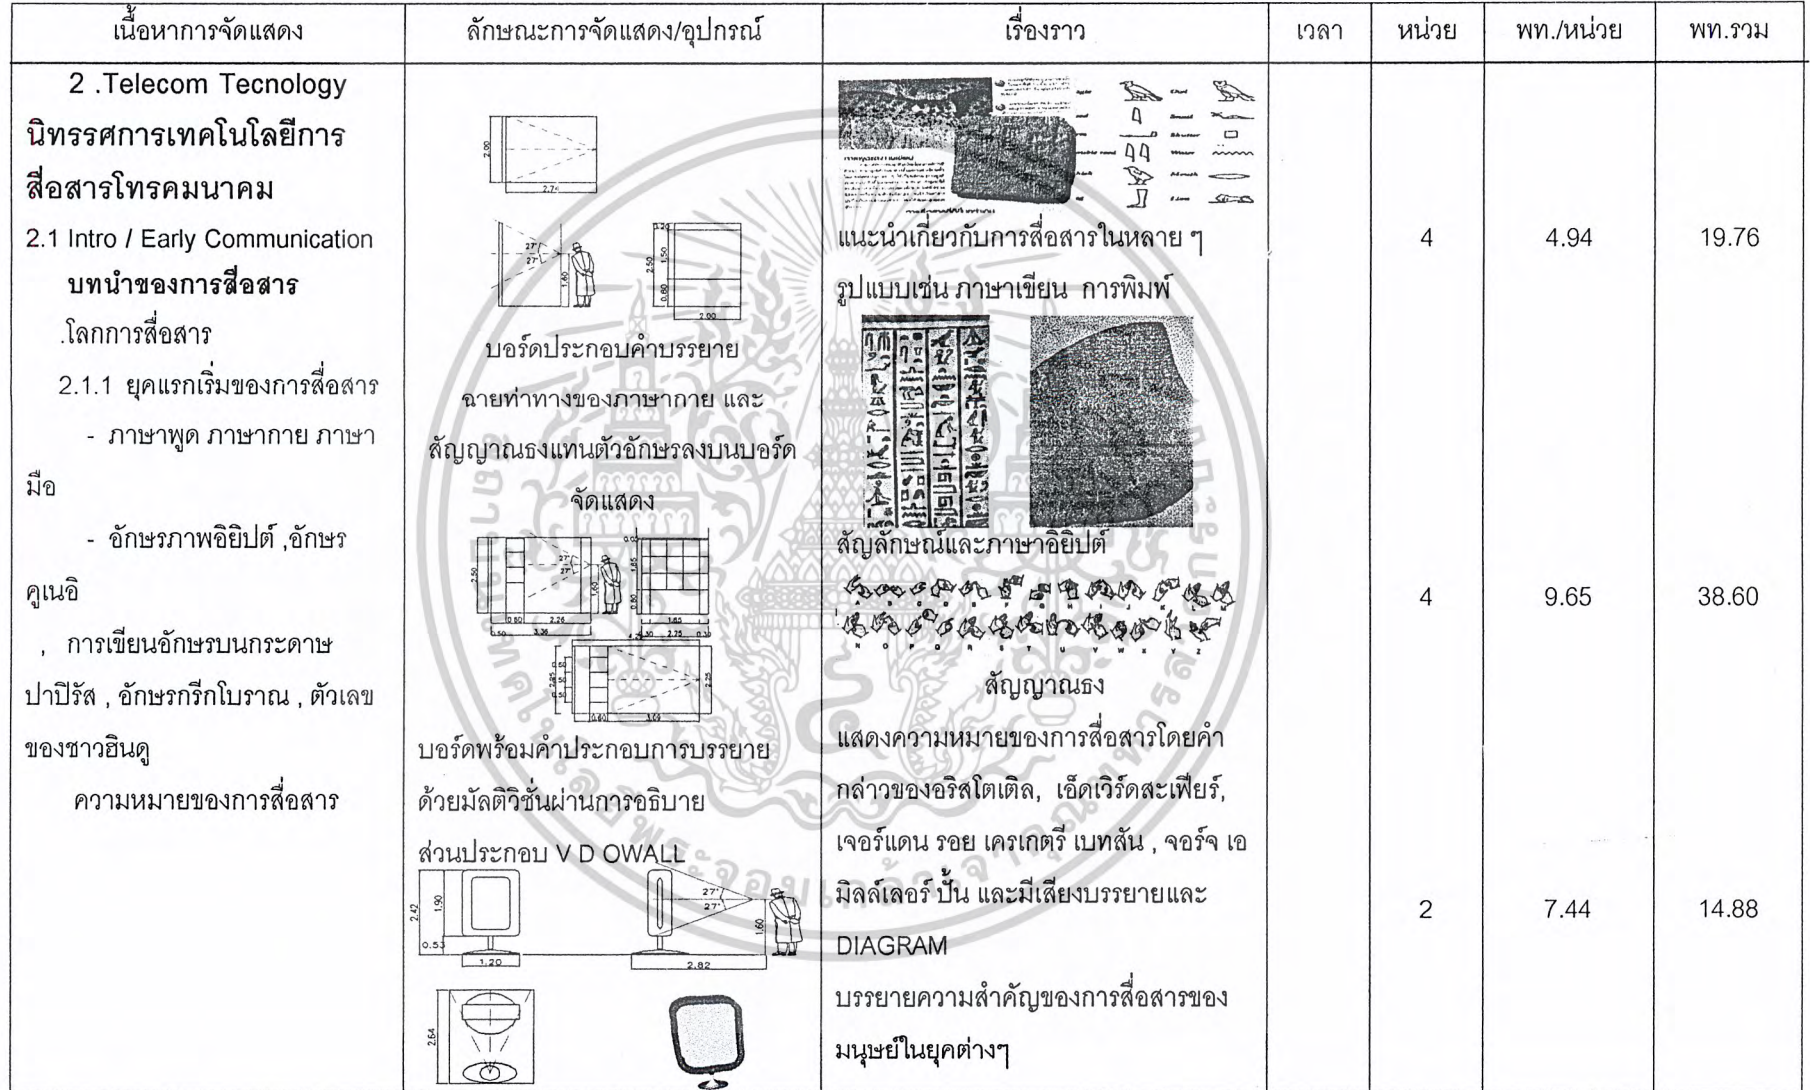 เนื้อหาการจัดแสดง
ลักษณะการจัดแสดง/อุปกรณ์
เรื่องราว
เวลา
หน่วย
พท./หน่วย
พท.รวม
2 .Telecom Tecnology
นิทรรศการเทคโนโลยีการ
สื่อสารโทรคมนาคม
2.1 Intro / Early Communication
บทนำของการสื่อสาร
.โลกการสื่อสาร
2.1.1 ยุคแรกเริ่มของการสื่อสาร
- ภาษาพูด ภาษากาย ภาษา
มือ
- อักษรภาพอิยิปต์ ,อักษร
คูเนอิ
, การเขียนอักษรบนกระดาษ
ปาปิรัส , อักษรกรีกโบราณ , ตัวเลข
ของชาวฮินดู
ความหมายของการสื่อสาร
2.00
2.74
27°
27°
1.60
0.20
1.50
2.50
0.80
2.00
บอร์ดประกอบคำบรรยาย
ฉายท่าทางของภาษากาย และ
สัญญาณธงแทนตัวอักษรลงบนบอร์ด
จัดแสดง
2.50
27°
27°
1.60
0.60
2.26
0.50
3.36
1.65
0.80
1.80
0.30
2.75
0.30
0.60
3.09
2.25
บอร์ดพร้อมคำประกอบการบรรยาย
ด้วยมัลติวิชั่นผ่านการอธิบาย
ส่วนประกอบ V D OWALL
2.42
1.90
0.53
1.20
27°
27°
1.60
2.82
2.64
แนะนำเกี่ยวกับการสื่อสารในหลาย ๆ
รูปแบบเช่น ภาษาเขียน การพิมพ์
สัญลักษณ์และภาษาอิยิปต์
A B C D E F G H I J K L M
N O P Q R S T U V W X Y Z
สัญญาณธง
แสดงความหมายของการสื่อสารโดยคำ
กล่าวของอริสโตเติล, เอ็ดเวิร์ดสะเฟียร์,
เจอร์แดน รอย เครเกตรี เบทสัน , จอร์จ เอ
มิลล์เลอร์ ปั้น และมีเสียงบรรยายและ
DIAGRAM
บรรยายความสำคัญของการสื่อสารของ
มนุษย์ในยุคต่างๆ
4 4.94 19.76
4 9.65 38.60
2 7.44 14.88